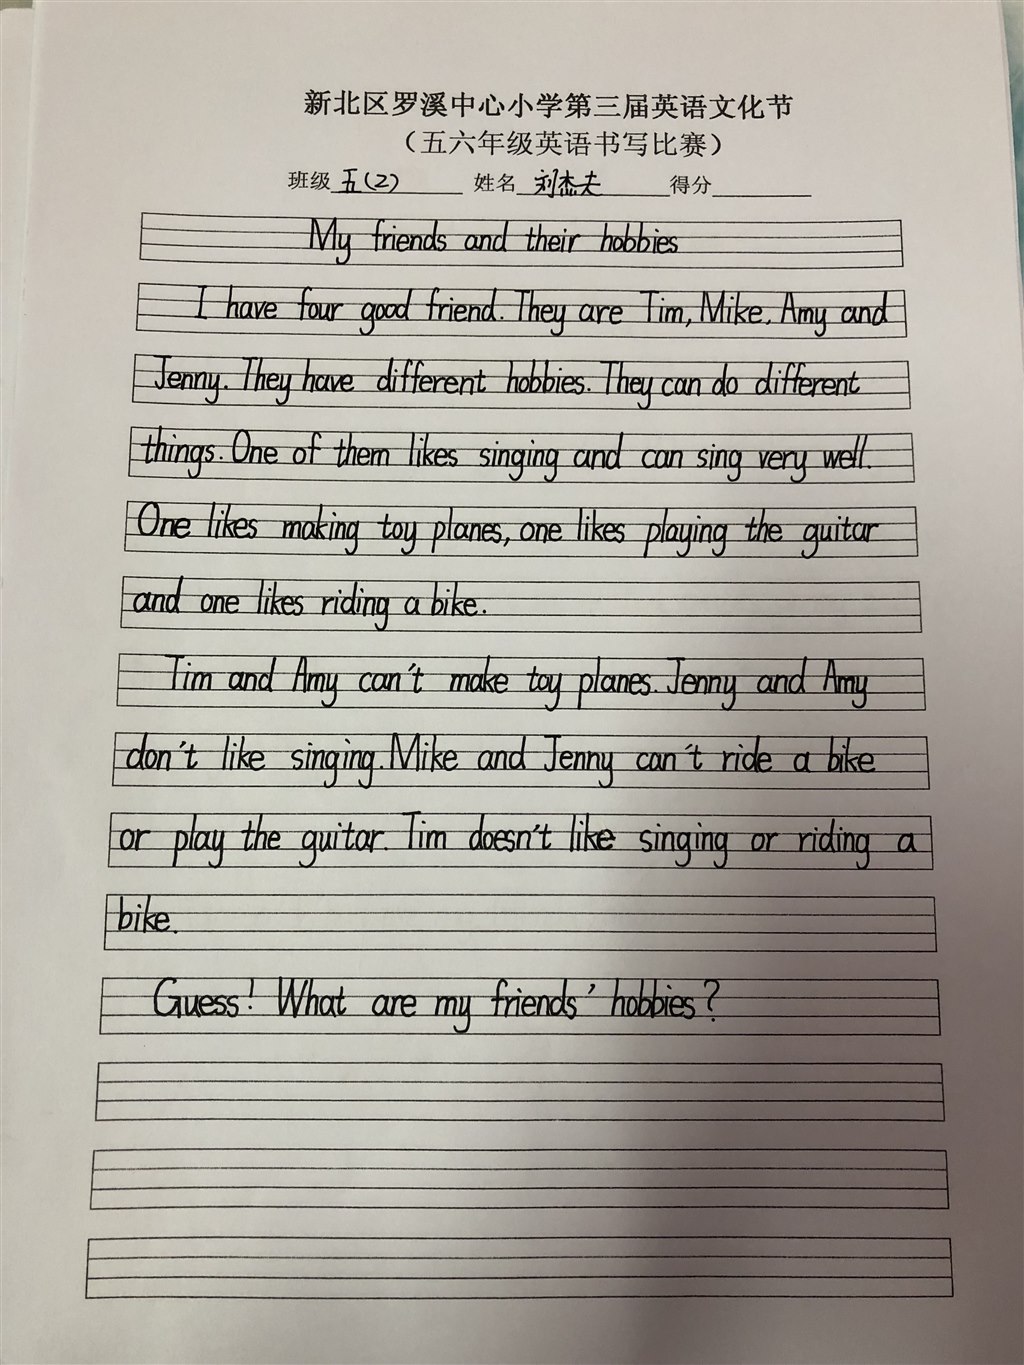 新北区罗溪中心小学第三届英语文化节
（五六年级英语书写比赛）
班级 五(2) 姓名 刘杰夫 得分
My friends and their hobbies
I have four good friend. They are Tim, Mike, Amy and
Jenny. They have different hobbies. They can do different
things. One of them likes singing and can sing very well.
One likes making toy planes, one likes playing the guitar
and one likes riding a bike.
Tim and Amy can't make toy planes. Jenny and Amy
don't like singing. Mike and Jenny can't ride a bike
or play the guitar. Tim doesn't like singing or riding a
bike.
Guess! What are my friends' hobbies?